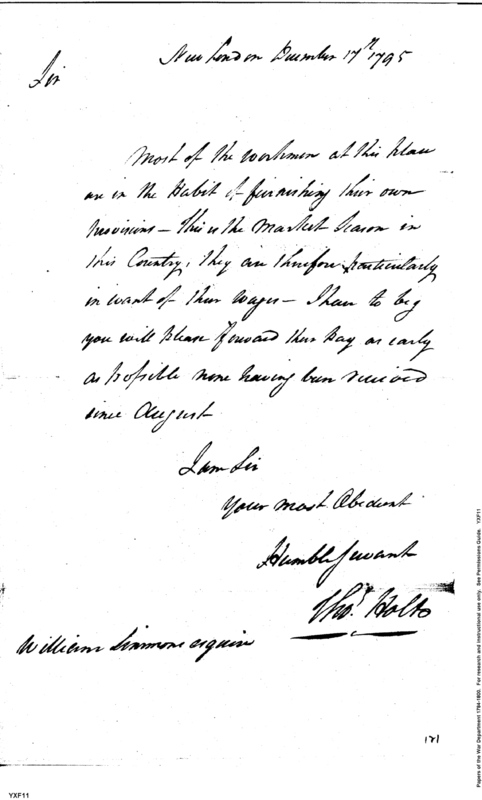 New London December 17th 1795
Sir
Most of the workmen at this place
are in the Habit of furnishing their own
provisions — This is the Market Season in
this Country, they are therefore particularly
in want of their wages — I have to beg
you will please forward their Pay as early
as possible none having been received
since August
I am Sir
Your most Obedient
Humble Servant
Thos. Holt
William Simmons esquire
171
YXF11
Papers of the War Department 1784-1800. For research and instructional use only. See Permissions Guide. YXF11